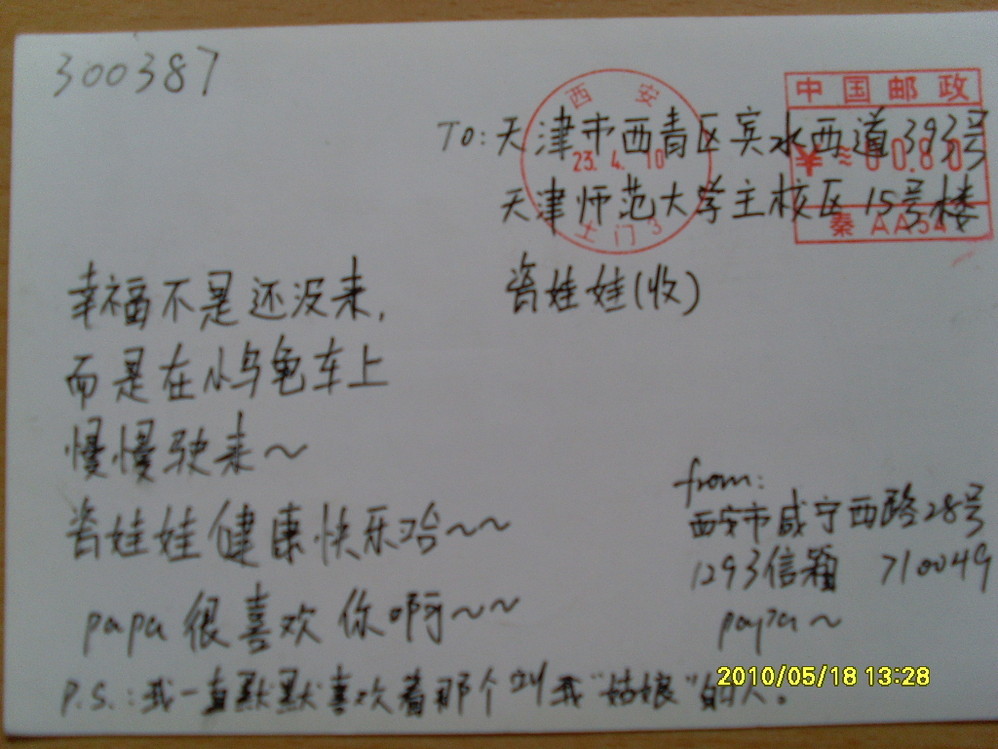 300387
西安
23.4.10
土门3
中国邮政
¥≈00.80
秦 AA
TO:天津市西青区宾水西道393号
天津师范大学主校区15号楼
瓷娃娃(收)
幸福不是还没来,
而是在小乌龟车上
慢慢驶来~
瓷娃娃健康快乐哈~~
papa很喜欢你啊~~
P.S.:我一直默默喜欢着那个叫我"姑娘"的人。
from:
西安市咸宁西路28号
1293信箱 710049
papa~
2010/05/18 13:28